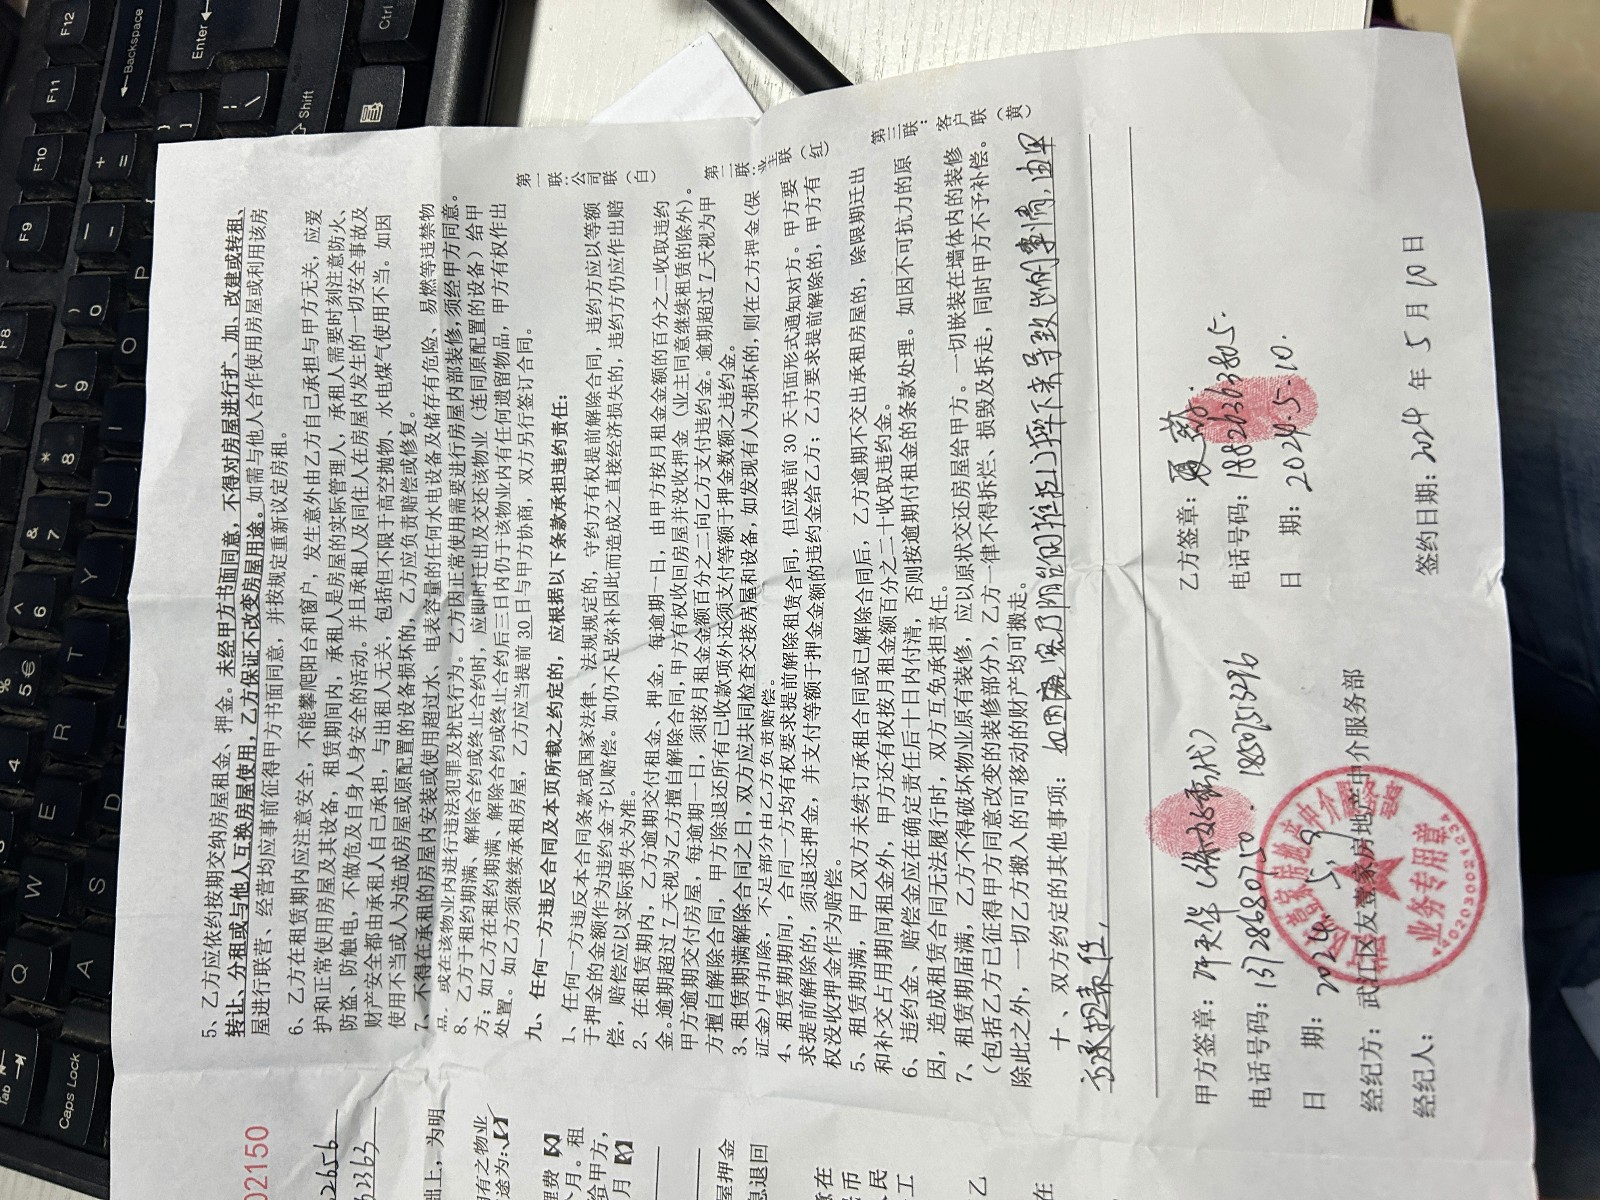 5、乙方应依约按期交纳房屋租金、押金。未经甲方书面同意，不得对房屋进行扩、加、改建或转租、
转让、分租或与他人互换房屋使用，乙方保证不改变房屋用途。如需与他人合作使用房屋或利用该房
屋进行联营、经营均应事前征得甲方书面同意，并按规定重新议定房租。
6、乙方在租赁期内应注意安全，不能攀爬阳台和窗户，发生意外由乙方自己承担与甲方无关，应爱
护和正常使用房屋及其设备，租赁期间内，承租人是房屋的实际管理人，承租人需要时刻注意防火、
防盗、防触电，不做危及自身人身安全的活动。并且承租人及同住人在房屋内发生的一切安全事故及
财产安全都由承租人自己承担，与出租人无关，包括但不限于高空抛物、水电煤气使用不当。如因
使用不当或人为造成房屋或原配置的设备损坏的，乙方应负责赔偿或修复。
7、不得在承租的房屋内安装或使用超过水、电表容量的任何水电设备及储存有危险、易燃等违禁物
品。或在该物业内进行违法犯罪及扰民行为。乙方因正常使用需要进行房屋内部装修，须经甲方同意。
8、乙方于租约期满、解除合约或终止合约时，应即时迁出及交还该物业（连同原配置的设备）给甲
方；如乙方在租约期满、解除合约或终止合约后三日内仍于该物业内有任何遗留物品，甲方有权作出
处置。如乙方须继续承租房屋，乙方应当提前 30 日与甲方协商，双方另行签订合同。
九、任何一方违反合同及本页所载之约定的，应根据以下条款承担违约责任：
1、任何一方违反本合同条款或国家法律、法规规定的，守约方有权提前解除合同，违约方应以等额
于押金的金额作为违约金予以赔偿。如仍不足弥补因此而造成之直接经济损失的，违约方仍应作出赔
偿，赔偿应以实际损失为准。
2、在租赁期内，乙方逾期交付租金、押金，每逾期一日，由甲方按月租金金额的百分之二收取违约
金。逾期超过 7 天视为乙方擅自解除合同，甲方有权收回房屋并没收押金（业主同意继续租赁的除外）。
甲方逾期交付房屋，每逾期一日，须按月租金金额百分之二向乙方支付违约金。逾期超过 7 天视为甲
方擅自解除合同，甲方除退还所有已收款项外还须支付等额于押金数额之违约金。
3、租赁期满解除合同之日，双方应共同检查交接房屋和设备，如发现有人为损坏的，则在乙方押金(保
证金)中扣除，不足部分由乙方负责赔偿。
4、租赁期期间，合同一方均有权要求提前解除租赁合同，但应提前 30 天书面形式通知对方。甲方要
求提前解除的，须退还押金，并支付等额于押金金额的违约金给乙方；乙方要求提前解除的，甲方有
权没收押金作为赔偿。
5、租赁期满，甲乙双方未续订承租合同或已解除合同后，乙方逾期不交出承租房屋的，除限期迁出
和补交占用期间租金外，甲方还有权按月租金额百分之二十收取违约金。
6、违约金、赔偿金应在确定责任后十日内付清，否则按逾期付租金的条款处理。如因不可抗力的原
因，造成租赁合同无法履行时，双方互免承担责任。
7、租赁期届满，乙方不得破坏物业原有装修，应以原状交还房屋给甲方。一切嵌装在墙体内的装修
（包括乙方已征得甲方同意改变的装修部分)，乙方一律不得拆烂、损毁及拆走，同时甲方不予补偿。
除此之外，一切乙方搬入的可移动的财产均可搬走。
十、双方约定的其他事项：如因 房间推拉门摔下来导致的事情，由甲
方承担责任，
甲方签章： （徐 代）
乙方签章：夏
电话号码：13728680750 18507513296
电话号码：18826303805.
日 期：2024. 5.
日 期：2024.5.10.
经纪方：武江区友壹家房地产中介服务部
经纪人：
签约日期：2024 年 5 月 10 日
业务专用章
4402030021234
第一联：公司联（白）
第二联：业主联（红）
第三联：客户联（黄）
02150
2656
62363
础上，为明
有之物业
途为：
理费
个月。租
给甲方，
月
屋押金
息退回
意在
币
人民
工
乙
在
F12
F11
F10
F9
F8
Backspace
Enter
Shift
Ctrl
Tab
Caps Lock
Q
W
E
R
T
Y
U
O
P
A
S
D